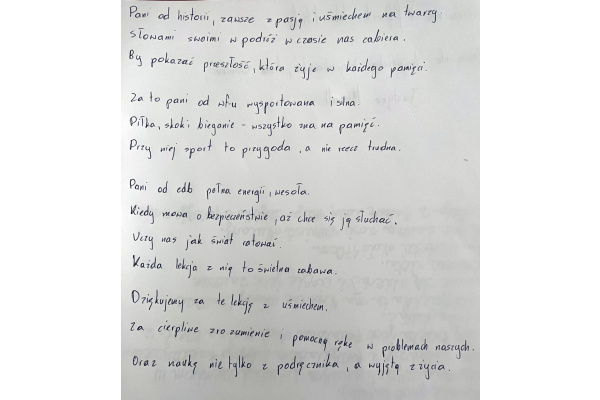 Pani od historii, zawsze z pasją i uśmiechem na twarzy
słowami swoimi w podróż w czasie nas zabiera.
By pokazać przeszłość, która żyje w każdego pamięci.
Za to pani od wfu wysportowana i silna.
Piłka, skoki bieganie - wszystko zna na pamięć.
Przy niej sport to przygoda, a nie rzecz trudna.
Pani od edb pełna energii, wesoła.
Kiedy mowa o bezpieczeństwie, aż chce się ją słuchać.
Uczy nas jak świat ratować.
Każda lekcja z nią to świetna zabawa.
Dziękujemy za te lekcję z uśmiechem.
Za cierpliwe zrozumienie i pomocną rękę w problemach naszych.
Oraz naukę nie tylko z podręcznika, a wyjętą z życia.